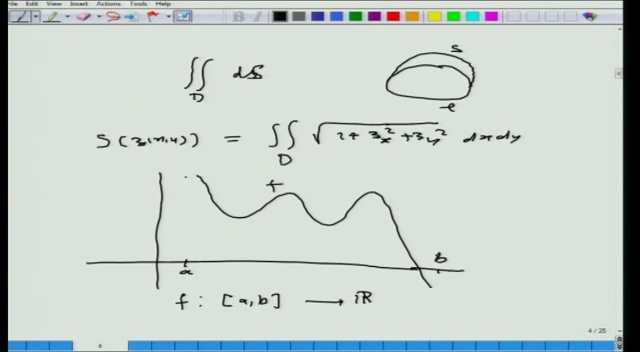 File Edit View Insert Actions Tools Help
B I
∬_D dS
S
S(z(x,y)) = ∬_D √(1+z_x²+z_y²) dxdy
f
a b
f : [a,b] ⟶ ℝ
4 / 25
4